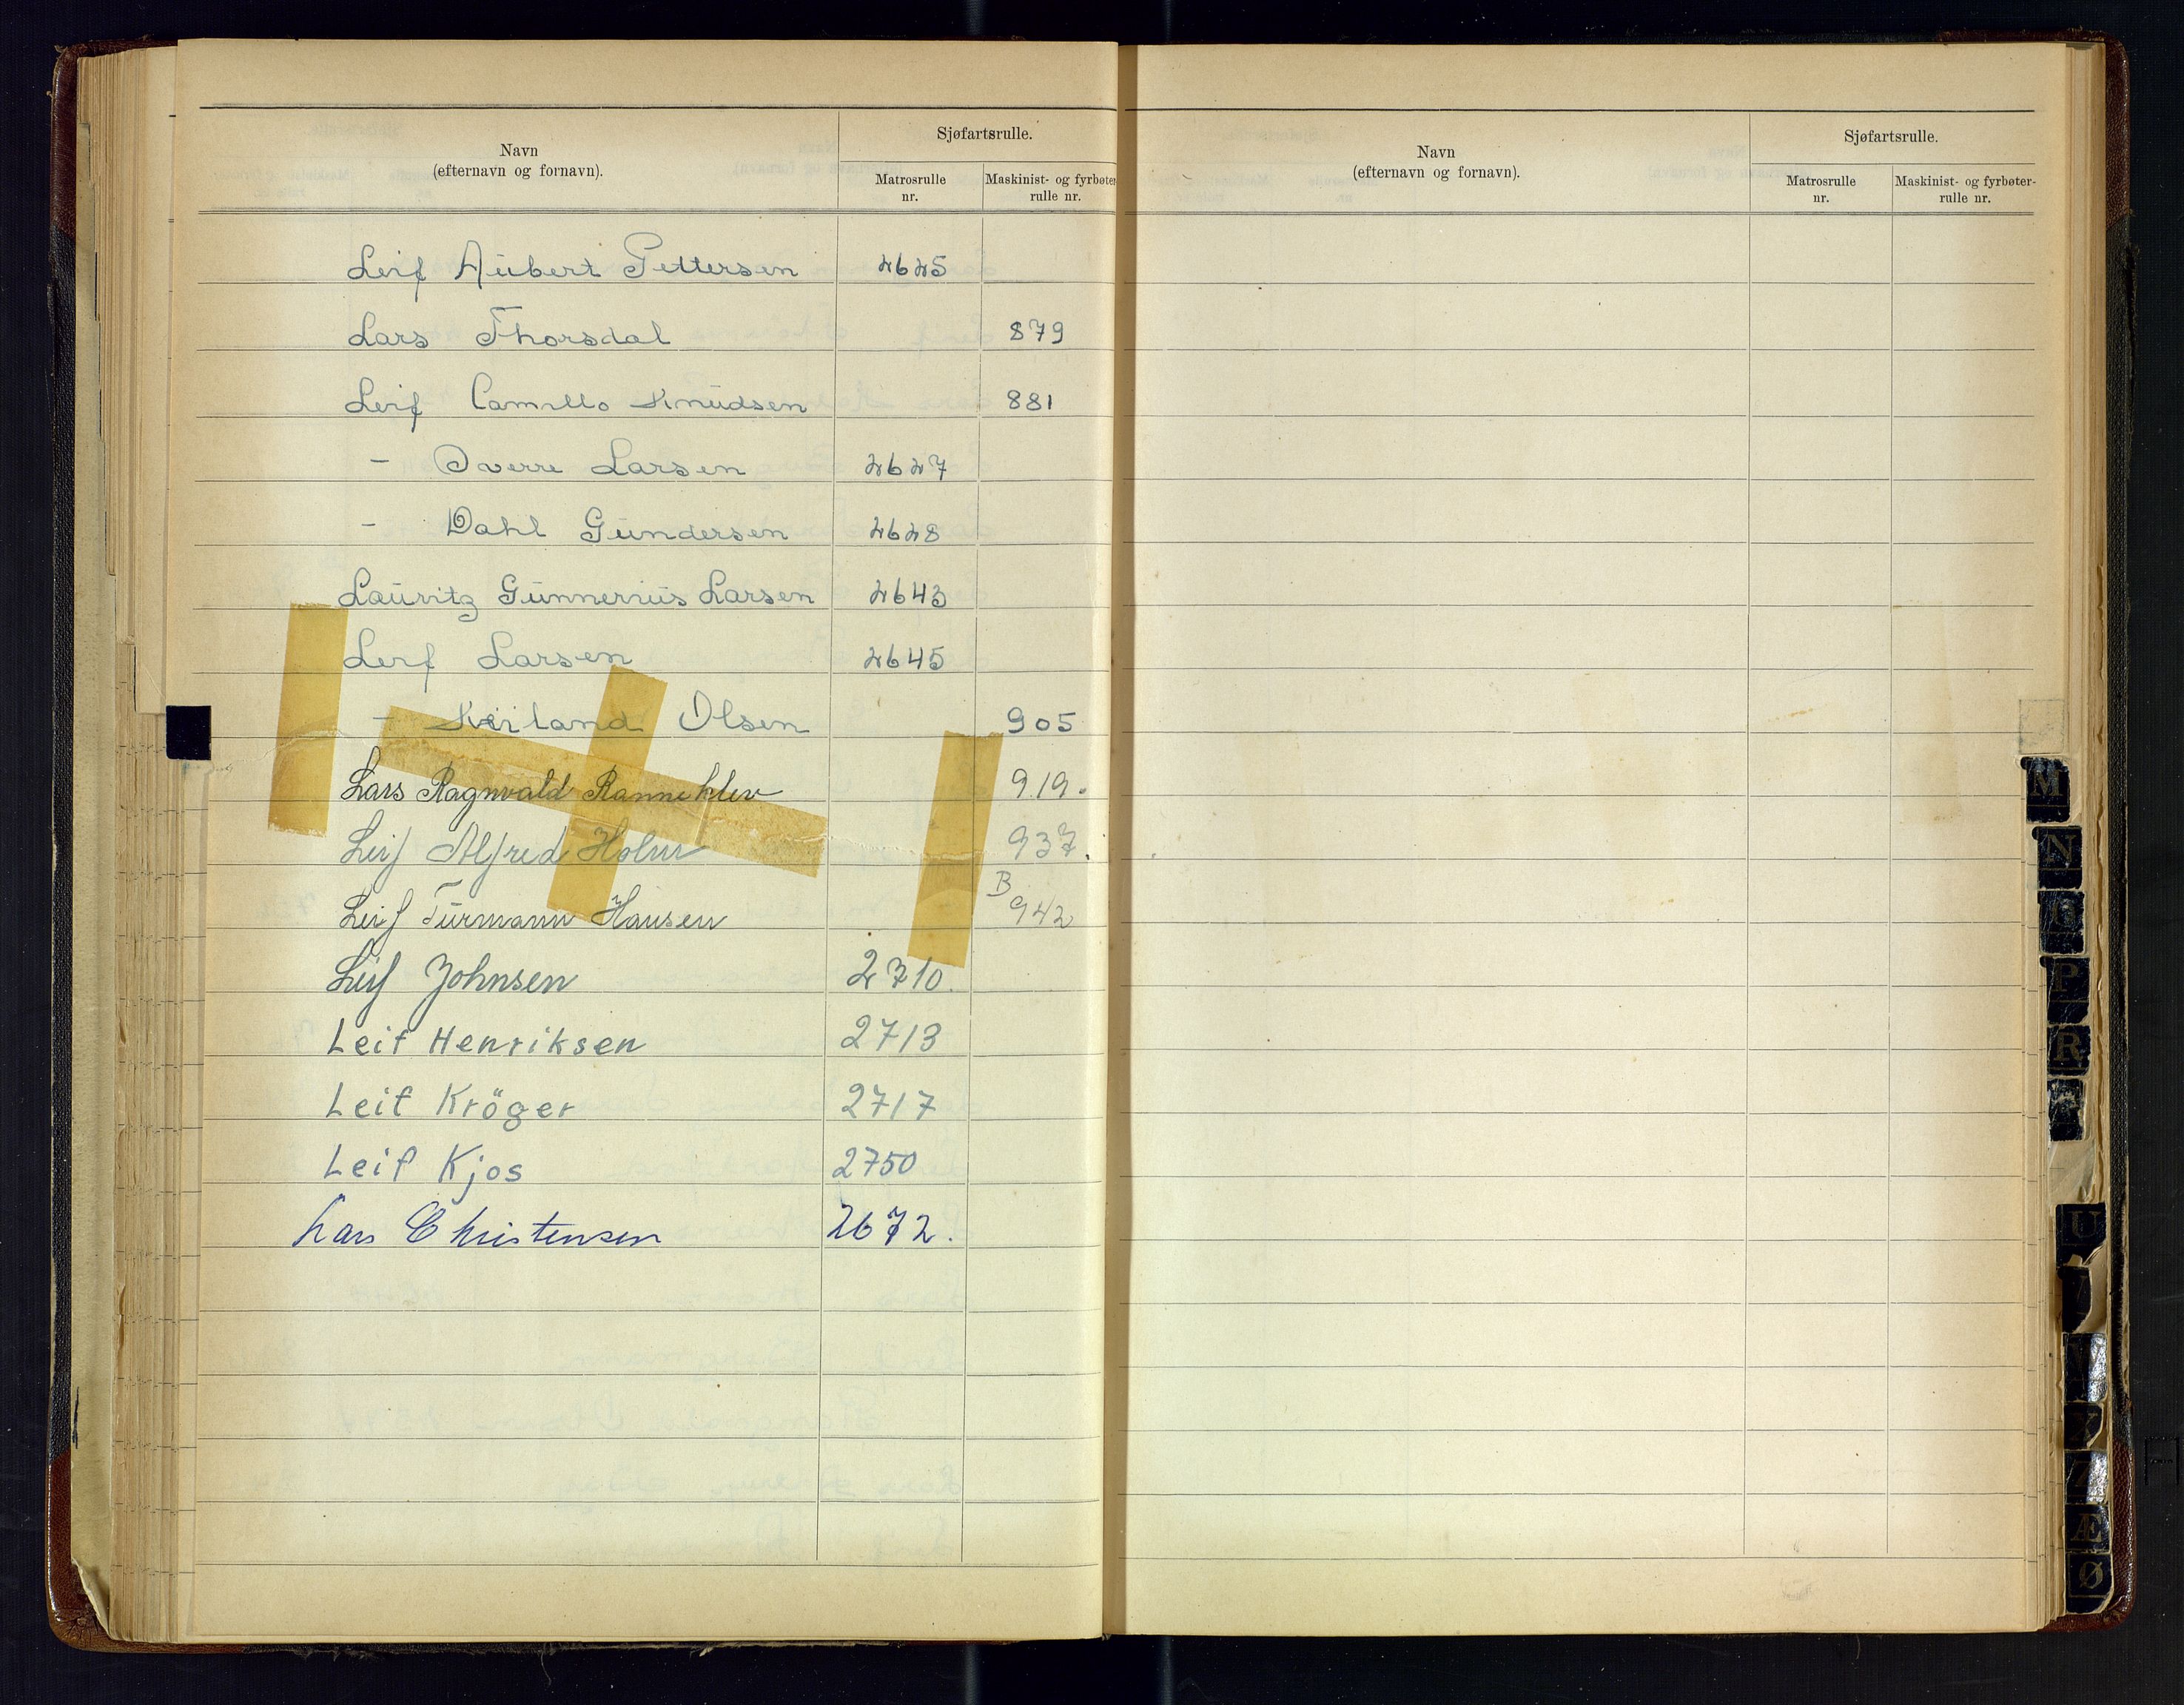 Navn
(efternavn og fornavn).
Sjøfartsrulle.
Matrosrulle
nr.
Maskinist- og fyrbøter
rulle nr.
Leif Aubert Pettersen 2625
Lars Thorsdal 879
Leif Camillo Knudsen 881
- Sverre Larsen 2627
- Dahl Gundersen 2628
Lauritz Gunnerius Larsen 2643
Leif Larsen 2645
- Keiland Olsen 905
Lars Ragnvald Ranneklev 919.
Leif Alfred Holm 937.
Leif Furmann Hansen B 942
Leif Johnsen 2710.
Leif Henriksen 2713
Leif Kröger 2717
Leif Kjos 2750
Lars Christensen 2672.
Navn
(efternavn og fornavn).
Sjøfartsrulle.
Matrosrulle
nr.
Maskinist- og fyrbøter-
rulle nr.
M
N
O
P
R
U
X
Z
Æ
Ø